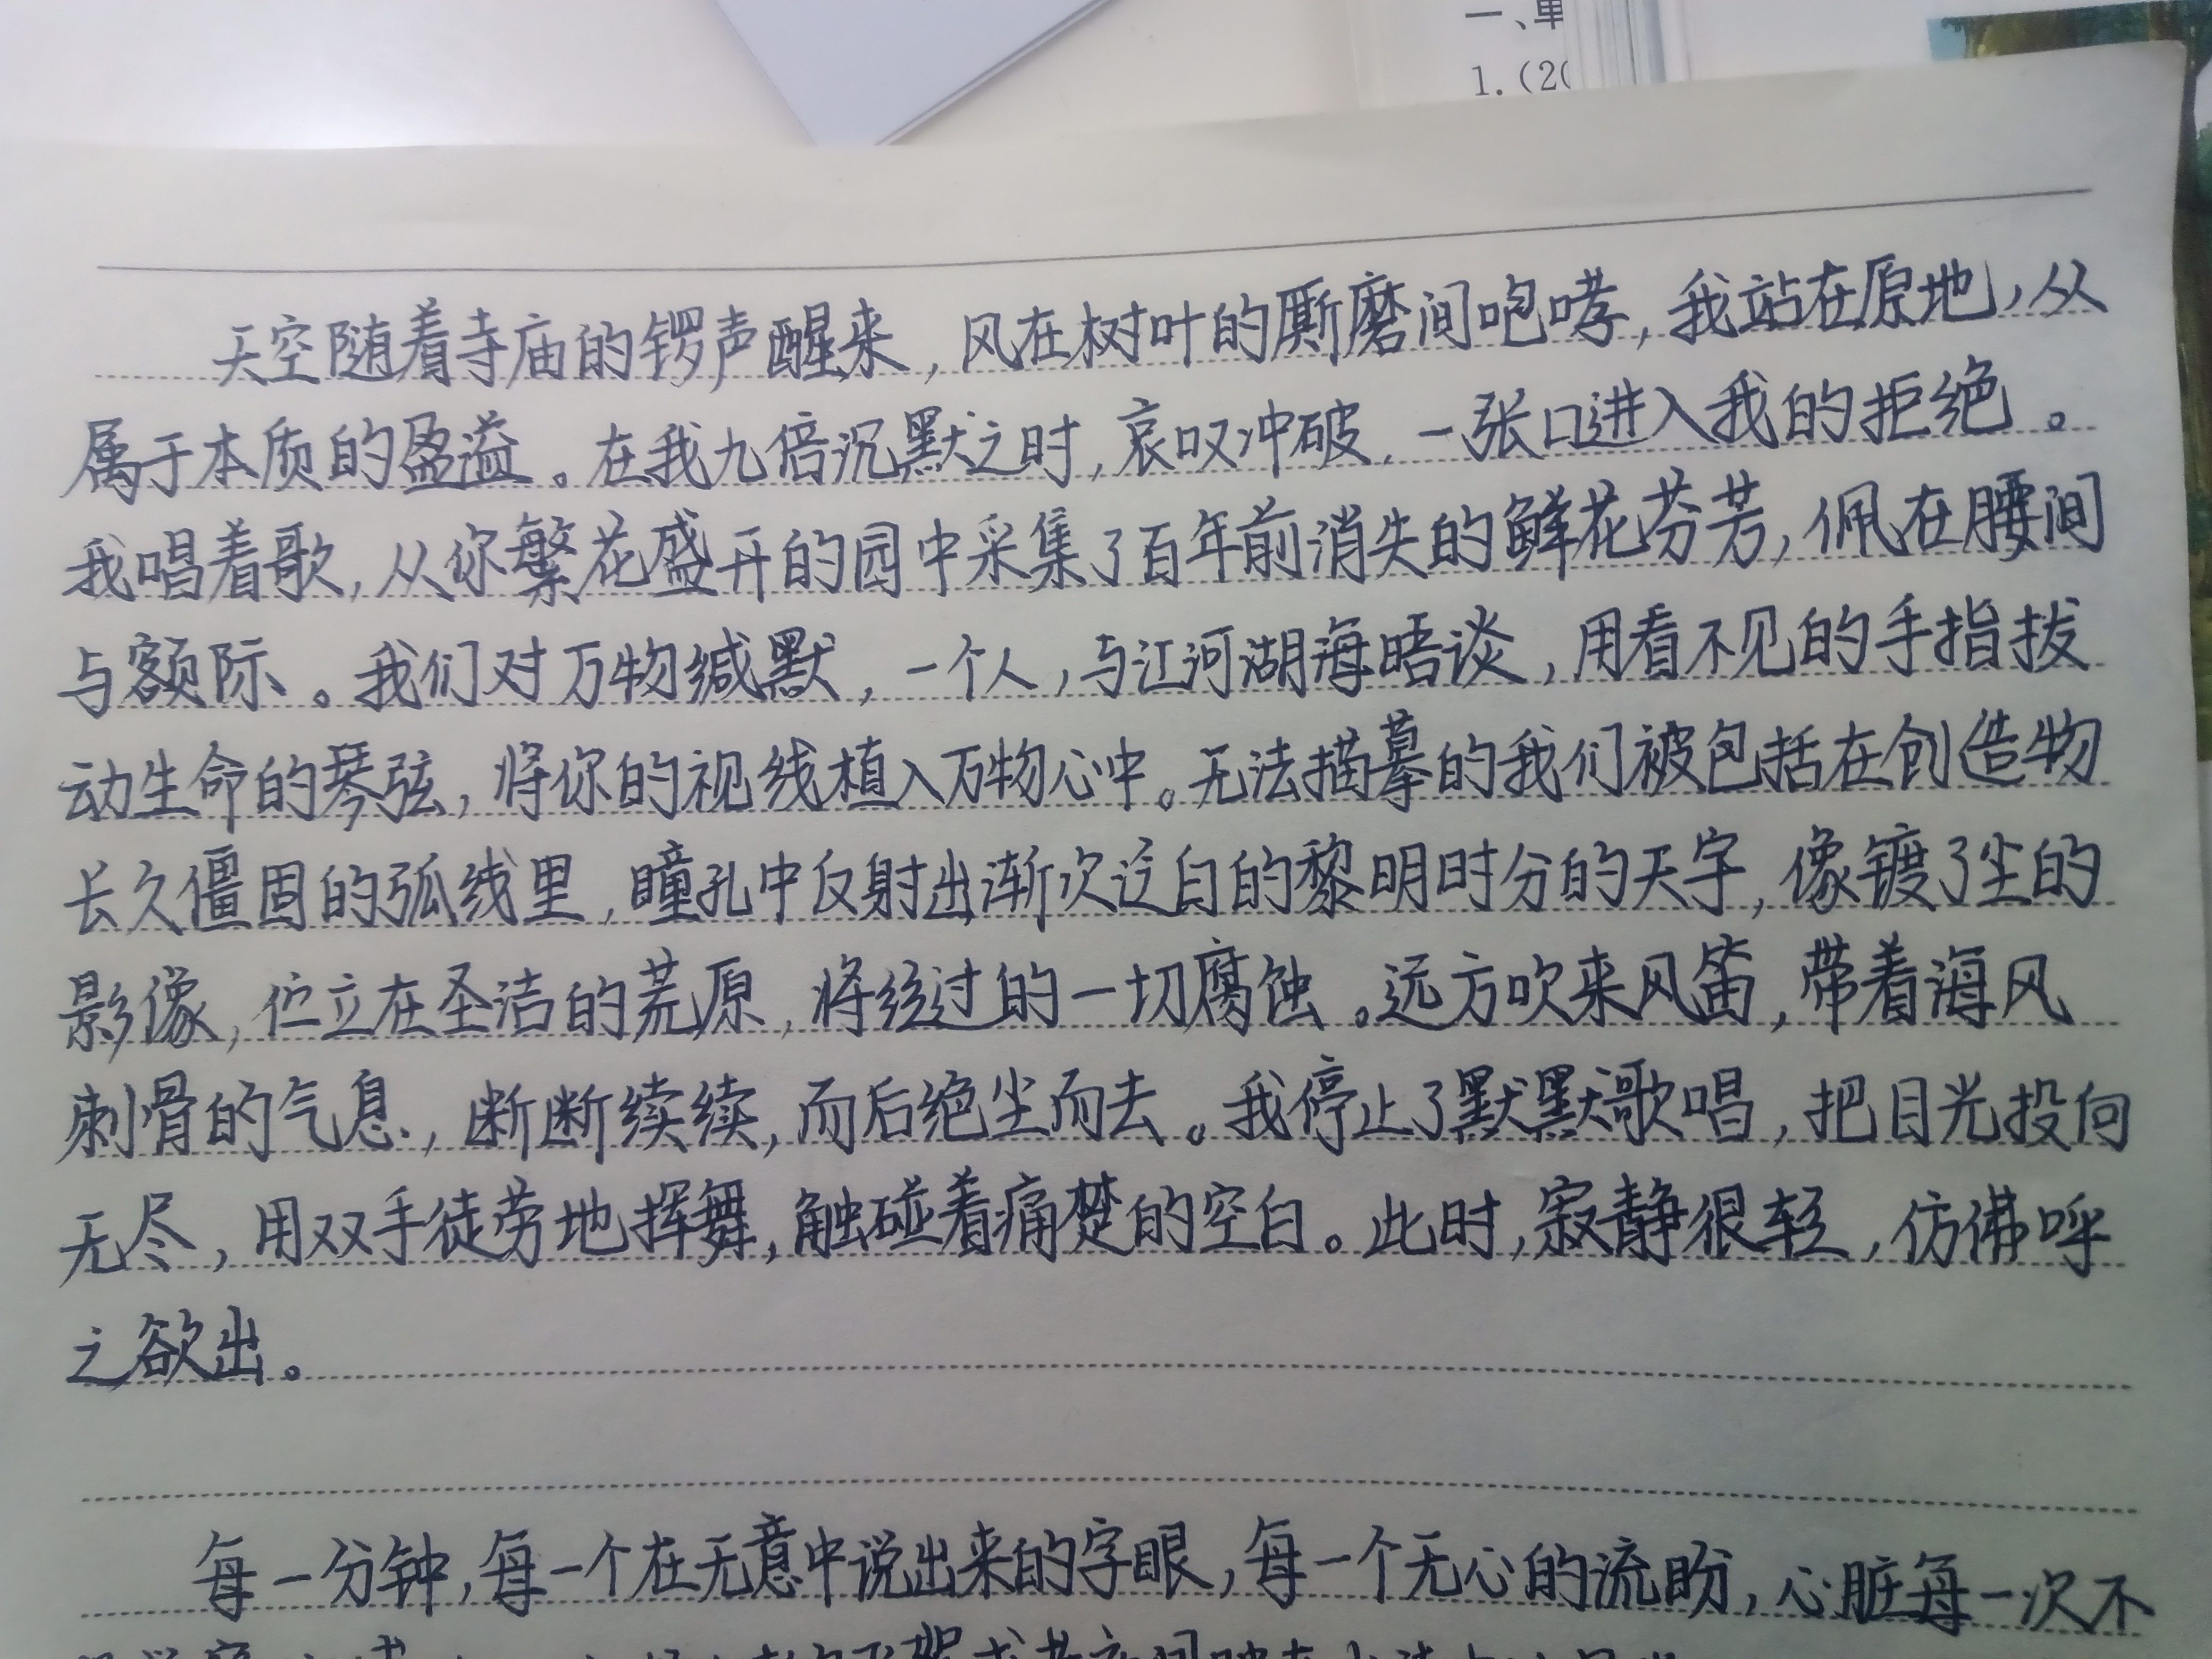 一、单
1.(20
天空随着寺庙的锣声醒来,风在树叶的厮磨间咆哮,我站在原地,从
属于本质的盈溢。在我九倍沉默之时,哀叹冲破,一张口进入我的拒绝。
我唱着歌,从你繁花盛开的园中采集了百年前消失的鲜花芬芳,佩在腰间
与额际。我们对万物缄默,一个人,与江河湖海晤谈,用看不见的手指拔
动生命的琴弦,将你的视线植入万物心中。无法描摹的我们被包括在创造物
长久僵固的弧线里,瞳孔中反射出渐次泛白的黎明时分的天宇,像镀了尘的
影像,伫立在圣洁的荒原,将经过的一切腐蚀。远方吹来风笛,带着海风
刺骨的气息,断断续续,而后绝尘而去。我停止了默默歌唱,把目光投向
无尽,用双手徒劳地挥舞,触碰着痛楚的空白。此时,寂静很轻,仿佛呼
之欲出。
每一分钟,每一个在无意中说出来的字眼,每一个无心的流盼,心脏每一次不